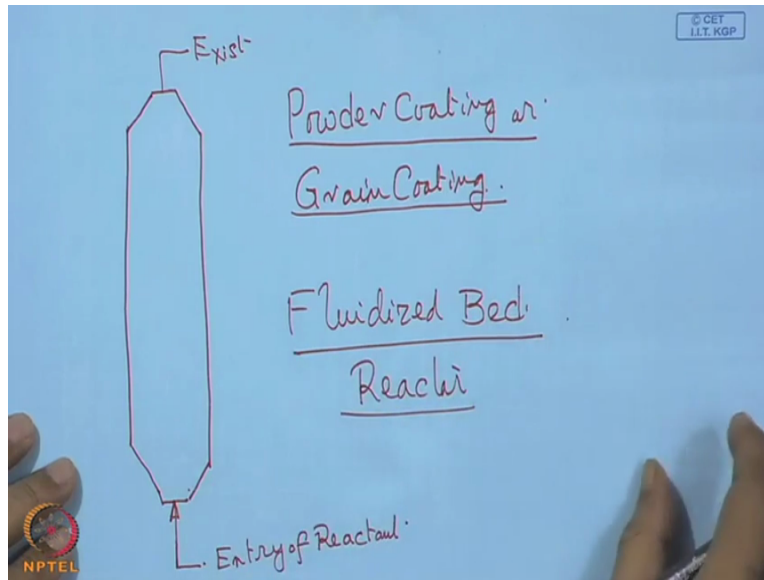 © CET
I.I.T. KGP
Exist
Powder Coating or
Grain Coating.
Fluidized Bed.
Reacki
Entry of Reactant.
NPTEL